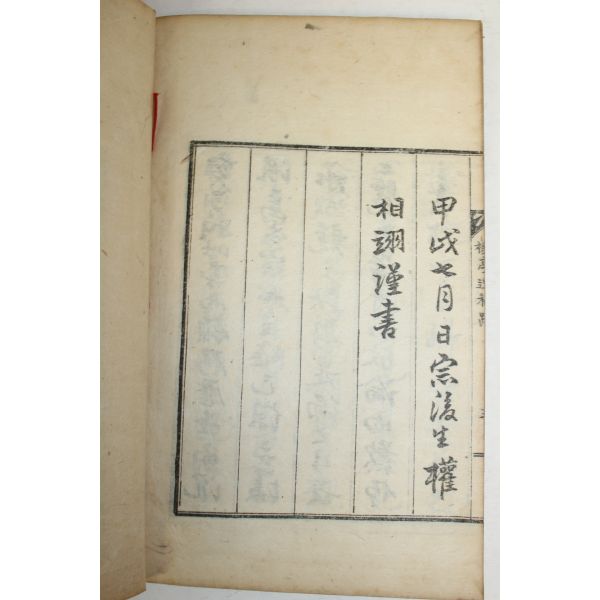 甲戌七月日宗後生權
相翊謹書